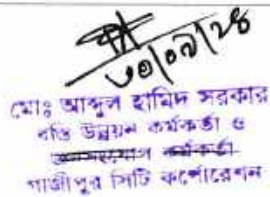 ৩০/০৯/২৪
মোঃ আব্দুল হামিদ সরকার
বস্তি উন্নয়ন কর্মকর্তা ও
কর্মকর্তা
গাজীপুর সিটি কর্পোরেশন